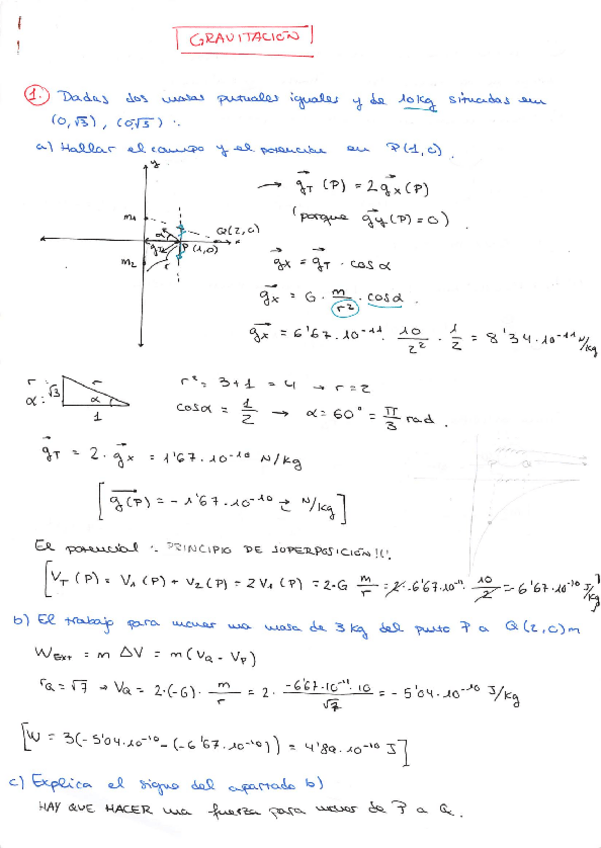 GRAVITACIÓN
1. Dadas dos masas puntuales iguales y de 10kg situadas en
(0,√3), (0,√3):
a) Hallar el campo y el potencial en P(1,0).
y
m1
m2
α
gx
r
P (1,0)
Q(2,0)
x
→ g⃗T (P) = 2g⃗x(P)
(porque g⃗y(P) = 0).
g⃗x = g⃗T · cosα
g⃗x = G · m/r² · cosα.
g⃗x = 6'67·10⁻¹¹ · 10/2² · 1/2 = 8'34·10⁻¹¹ N/kg
r:
α:
√3
r
α
1
r² = 3+1 = 4 → r=2
cosα = 1/2 → α=60° = π/3 rad.
g⃗T = 2·g⃗x = 1'67·10⁻¹⁰ N/kg
[g⃗(P) = -1'67·10⁻¹⁰ i⃗ N/kg]
El potencial: PRINCIPIO DE SUPERPOSICIÓN!!:
[VT (P) = V1 (P) + V2 (P) = 2V1 (P) = 2·G m/r = -2·6'67·10⁻¹¹ · 10/2 = -6'67·10⁻¹⁰ J/kg]
b) El trabajo para mover una masa de 3kg del punto P a Q(2,0)m
WEXT = m ΔV = m(VQ - VP)
rQ = √7 → VQ = 2·(-G)· m/r = 2· -6'67·10⁻¹¹·10/√7 = -5'04·10⁻¹⁰ J/kg
[W = 3(-5'04·10⁻¹⁰ - (-6'67·10⁻¹⁰)) = 4'89·10⁻¹⁰ J]
c) Explica el signo del apartado b)
HAY QUE HACER una fuerza para mover de P a Q.